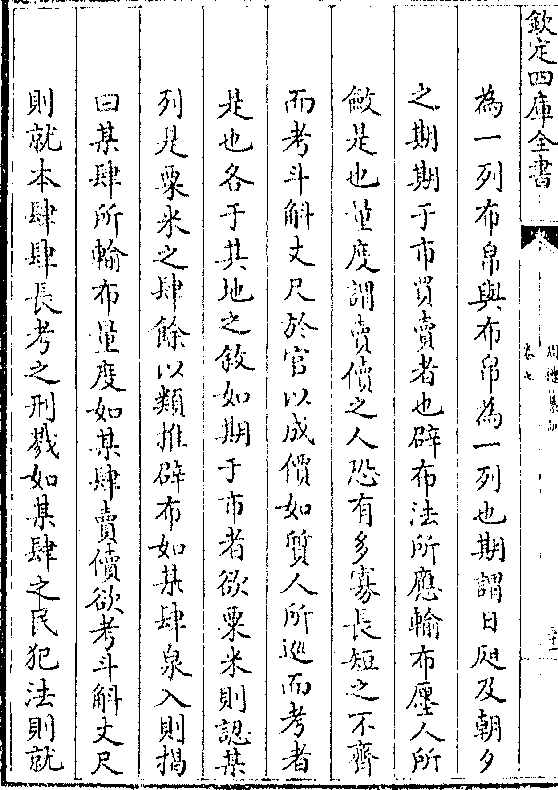 欽定四庫全書
卷七
為一列布帛與布帛為一列也期謂日昃及朝夕
之期期于市買賣者也辟布法所應輸布廛人所
斂是也量度謂賣儥之人恐有多寡長短之不齊
而考斗斛丈尺於官以成價如質人所巡而考者
是也各于其地之敘如期于市者欲粟米則認某
列是粟米之肆餘以類推辟布如某肆泉入則揭
曰某肆所輸布量度如某肆賣儥欲考斗斛丈尺
則就本肆肆長考之刑戮如某肆之民犯法則就